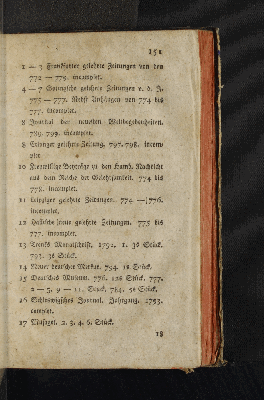 151
1 — 3 Frankfurter gelehrte Zeitungen von den
772 — 779. incomplet.
4 — 7 Göttingische gelehrte Zeitungen v. d. J.
775 — 777. Nebst Anhängen von 774 bis
777. incomplet.
8 Journal der neuesten Weltbegebenheiten.
789. 799. incomplet.
8 Erlanger gelehrte Zeitung. 797. 798. incom
plet
10 Freywillige Beyträge zu den Hamb. Nachricht
aus dem Reiche der Gelehrsamkeit. 774 bis
778. incomplet.
11 Leipziger gelehrte Zeitungen. 774 — 776.
incomplet.
12 Hallische neue gelehrte Zeitungen. 775 bis
777. incomplet.
13 Monatschrift. 1792. 1. 3s Stück.
793. 3s Stück.
14 Neuer deutscher Merkur. 794. 18 Stück.
15 Deutsches Museum. 776. 12s Stück 777.
2 — 5, 9 — 11. Stück. 784. 5s Stück.
16 Schleswigsches Journal. Jahrgang. 1793.
complet.
17 2. 3. 4. 6. Stück.
18